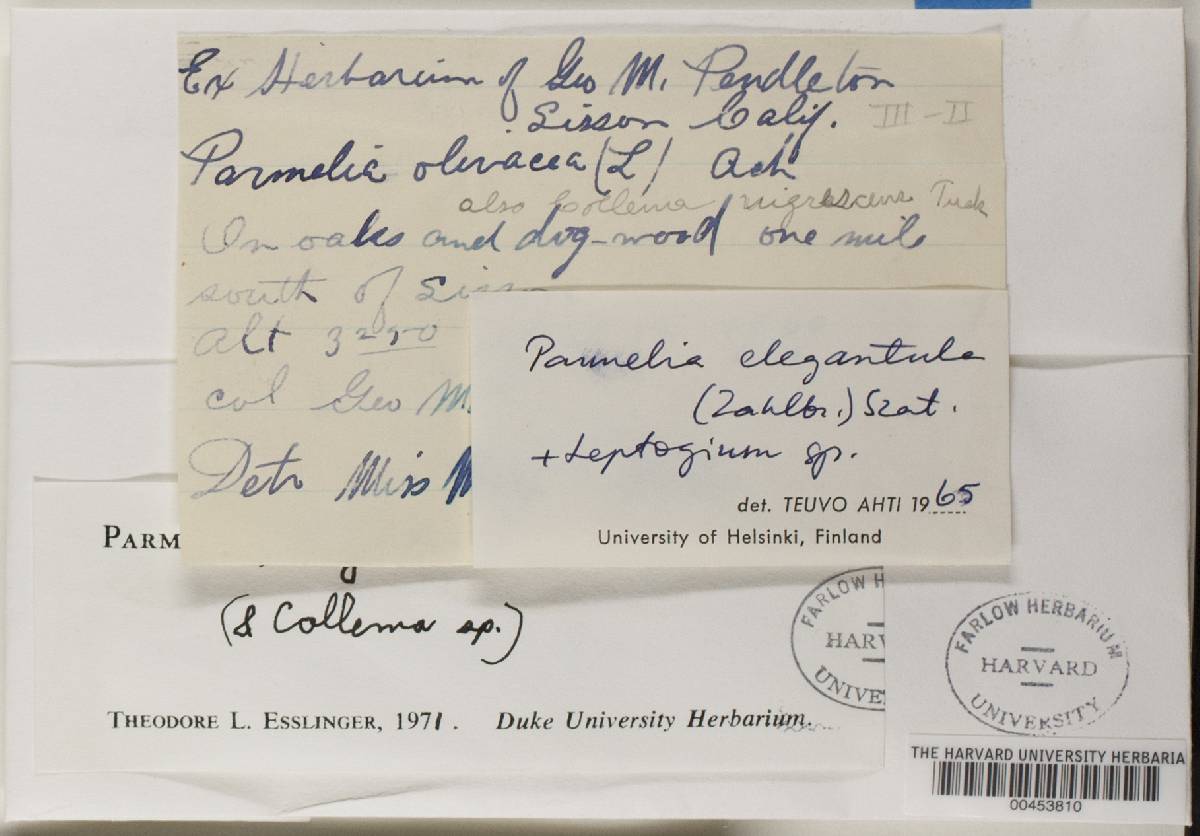 Ex Herbarium of Geo M. Pendleton
Sisson Calif. III-II
Parmelia olivacea (L) Ach
also Collema nigrescens Tuck
On oaks and dog-wood one mile
south of
Alt 3250
col Geo M.
Detr Miss
Parmelia elegantula
(Zahlbr.) Szat.
+ Leptogium sp.
det. TEUVO AHTI 1965
University of Helsinki, Finland
PARM
(& Collema sp.)
THEODORE L. ESSLINGER, 1971. Duke University Herbarium.
FARLOW H
HARV
UNIVE
FARLOW HERBARIUM
HARVARD
UNIVERSITY
THE HARVARD UNIVERSITY HERBARIA
00453810